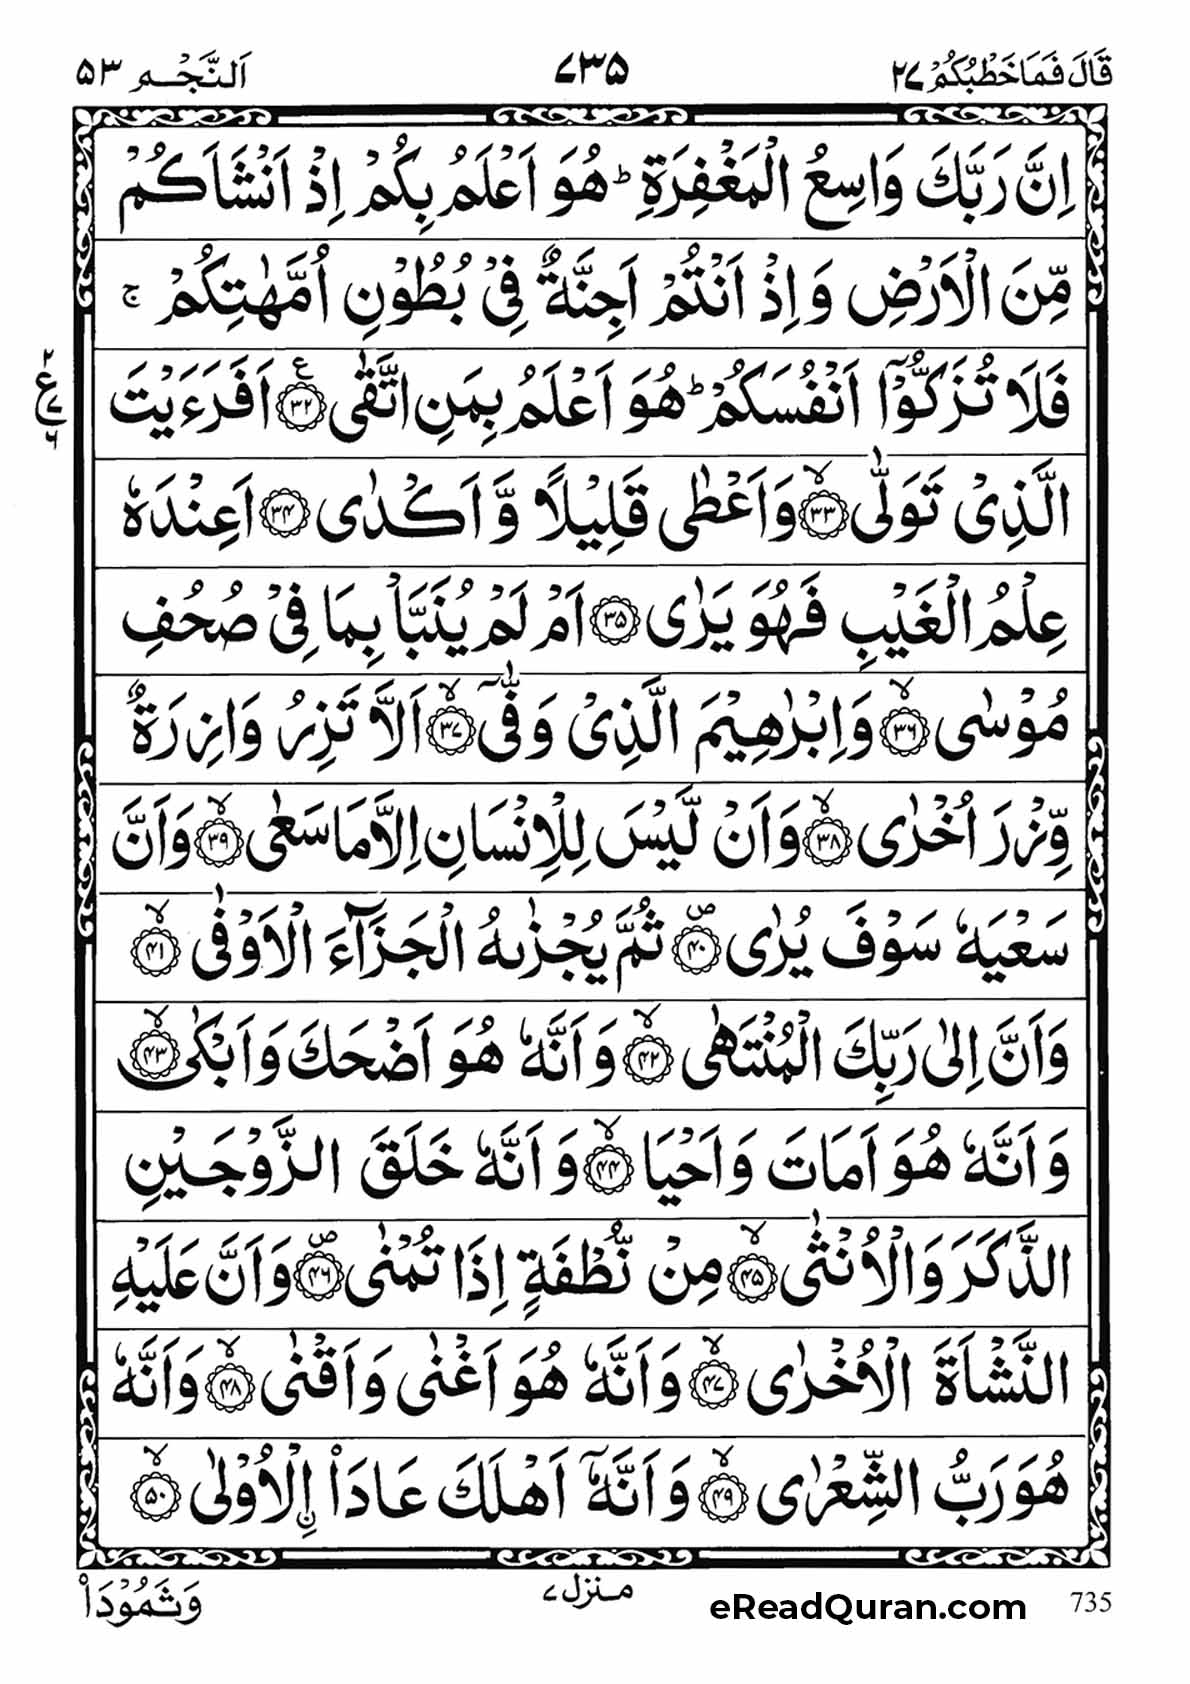 قَالَ فَمَا خَطْبُكُمْ ٢٧
٧٣٥
اَلنَّجْم ٥٣
اِنَّ رَبَّكَ وَاسِعُ الْمَغْفِرَةِ ؕ هُوَ اَعْلَمُ بِكُمْ اِذْ اَنْشَاَكُمْ
مِّنَ الْاَرْضِ وَ اِذْ اَنْتُمْ اَجِنَّةٌ فِیْ بُطُوْنِ اُمَّهٰتِكُمْ ۚ
فَلَا تُزَكُّوْۤا اَنْفُسَكُمْ ؕ هُوَ اَعْلَمُ بِمَنِ اتَّقٰی ﴿٣٢﴾ ع اَفَرَءَیْتَ
ع ٢ ٦
الَّذِیْ تَوَلّٰی ﴿٣٣﴾ۙ وَاَعْطٰی قَلِیْلًا وَّ اَكْدٰی ﴿٣٤﴾ اَعِنْدَهٗ
عِلْمُ الْغَیْبِ فَهُوَ یَرٰی ﴿٣٥﴾ اَمْ لَمْ یُنَبَّاْ بِمَا فِیْ صُحُفِ
مُوْسٰی ﴿٣٦﴾ۙ وَ اِبْرٰهِیْمَ الَّذِیْ وَفّٰۤی ﴿٣٧﴾ۙ اَلَّا تَزِرُ وَازِرَةٌ
وِّزْرَ اُخْرٰی ﴿٣٨﴾ۙ وَ اَنْ لَّیْسَ لِلْاِنْسَانِ اِلَّا مَا سَعٰی ﴿٣٩﴾ۙ وَ اَنَّ
سَعْیَهٗ سَوْفَ یُرٰی ﴿٤٠﴾۪ ثُمَّ یُجْزٰىهُ الْجَزَآءَ الْاَوْفٰی ﴿٤١﴾ۙ
وَ اَنَّ اِلٰی رَبِّكَ الْمُنْتَهٰی ﴿٤٢﴾ۙ وَ اَنَّهٗ هُوَ اَضْحَكَ وَ اَبْكٰی ﴿٤٣﴾ۙ
وَ اَنَّهٗ هُوَ اَمَاتَ وَ اَحْیَا ﴿٤٤﴾ۙ وَ اَنَّهٗ خَلَقَ الزَّوْجَیْنِ
الذَّكَرَ وَ الْاُنْثٰی ﴿٤٥﴾ۙ مِنْ نُّطْفَةٍ اِذَا تُمْنٰی ﴿٤٦﴾۪ وَ اَنَّ عَلَیْهِ
النَّشْاَةَ الْاُخْرٰی ﴿٤٧﴾ۙ وَ اَنَّهٗ هُوَ اَغْنٰی وَ اَقْنٰی ﴿٤٨﴾ۙ وَ اَنَّهٗ
هُوَ رَبُّ الشِّعْرٰی ﴿٤٩﴾ۙ وَ اَنَّهٗۤ اَهْلَكَ عَادَا۟ ﹰ۬الْاُوْلٰی ﴿٥٠﴾ۙ
وَ ثَمُوْدَا۟
منزل ٧
eReadQuran.com
735